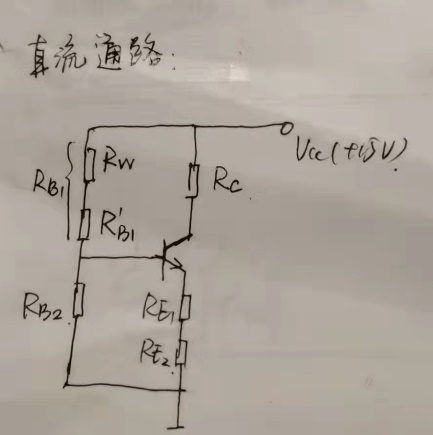 直流通路:
RW
Vcc(+15V)
RB1
RC
R'B1
RB2
RE1
RE2